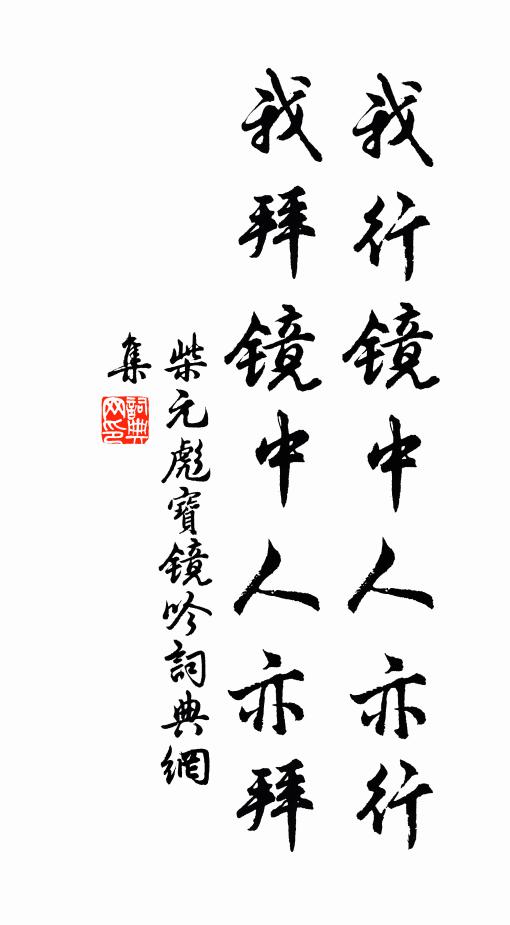 我行镜中人亦行
我拜镜中人亦拜
柴元彪寶镜吟詞典網
集
詞典网印